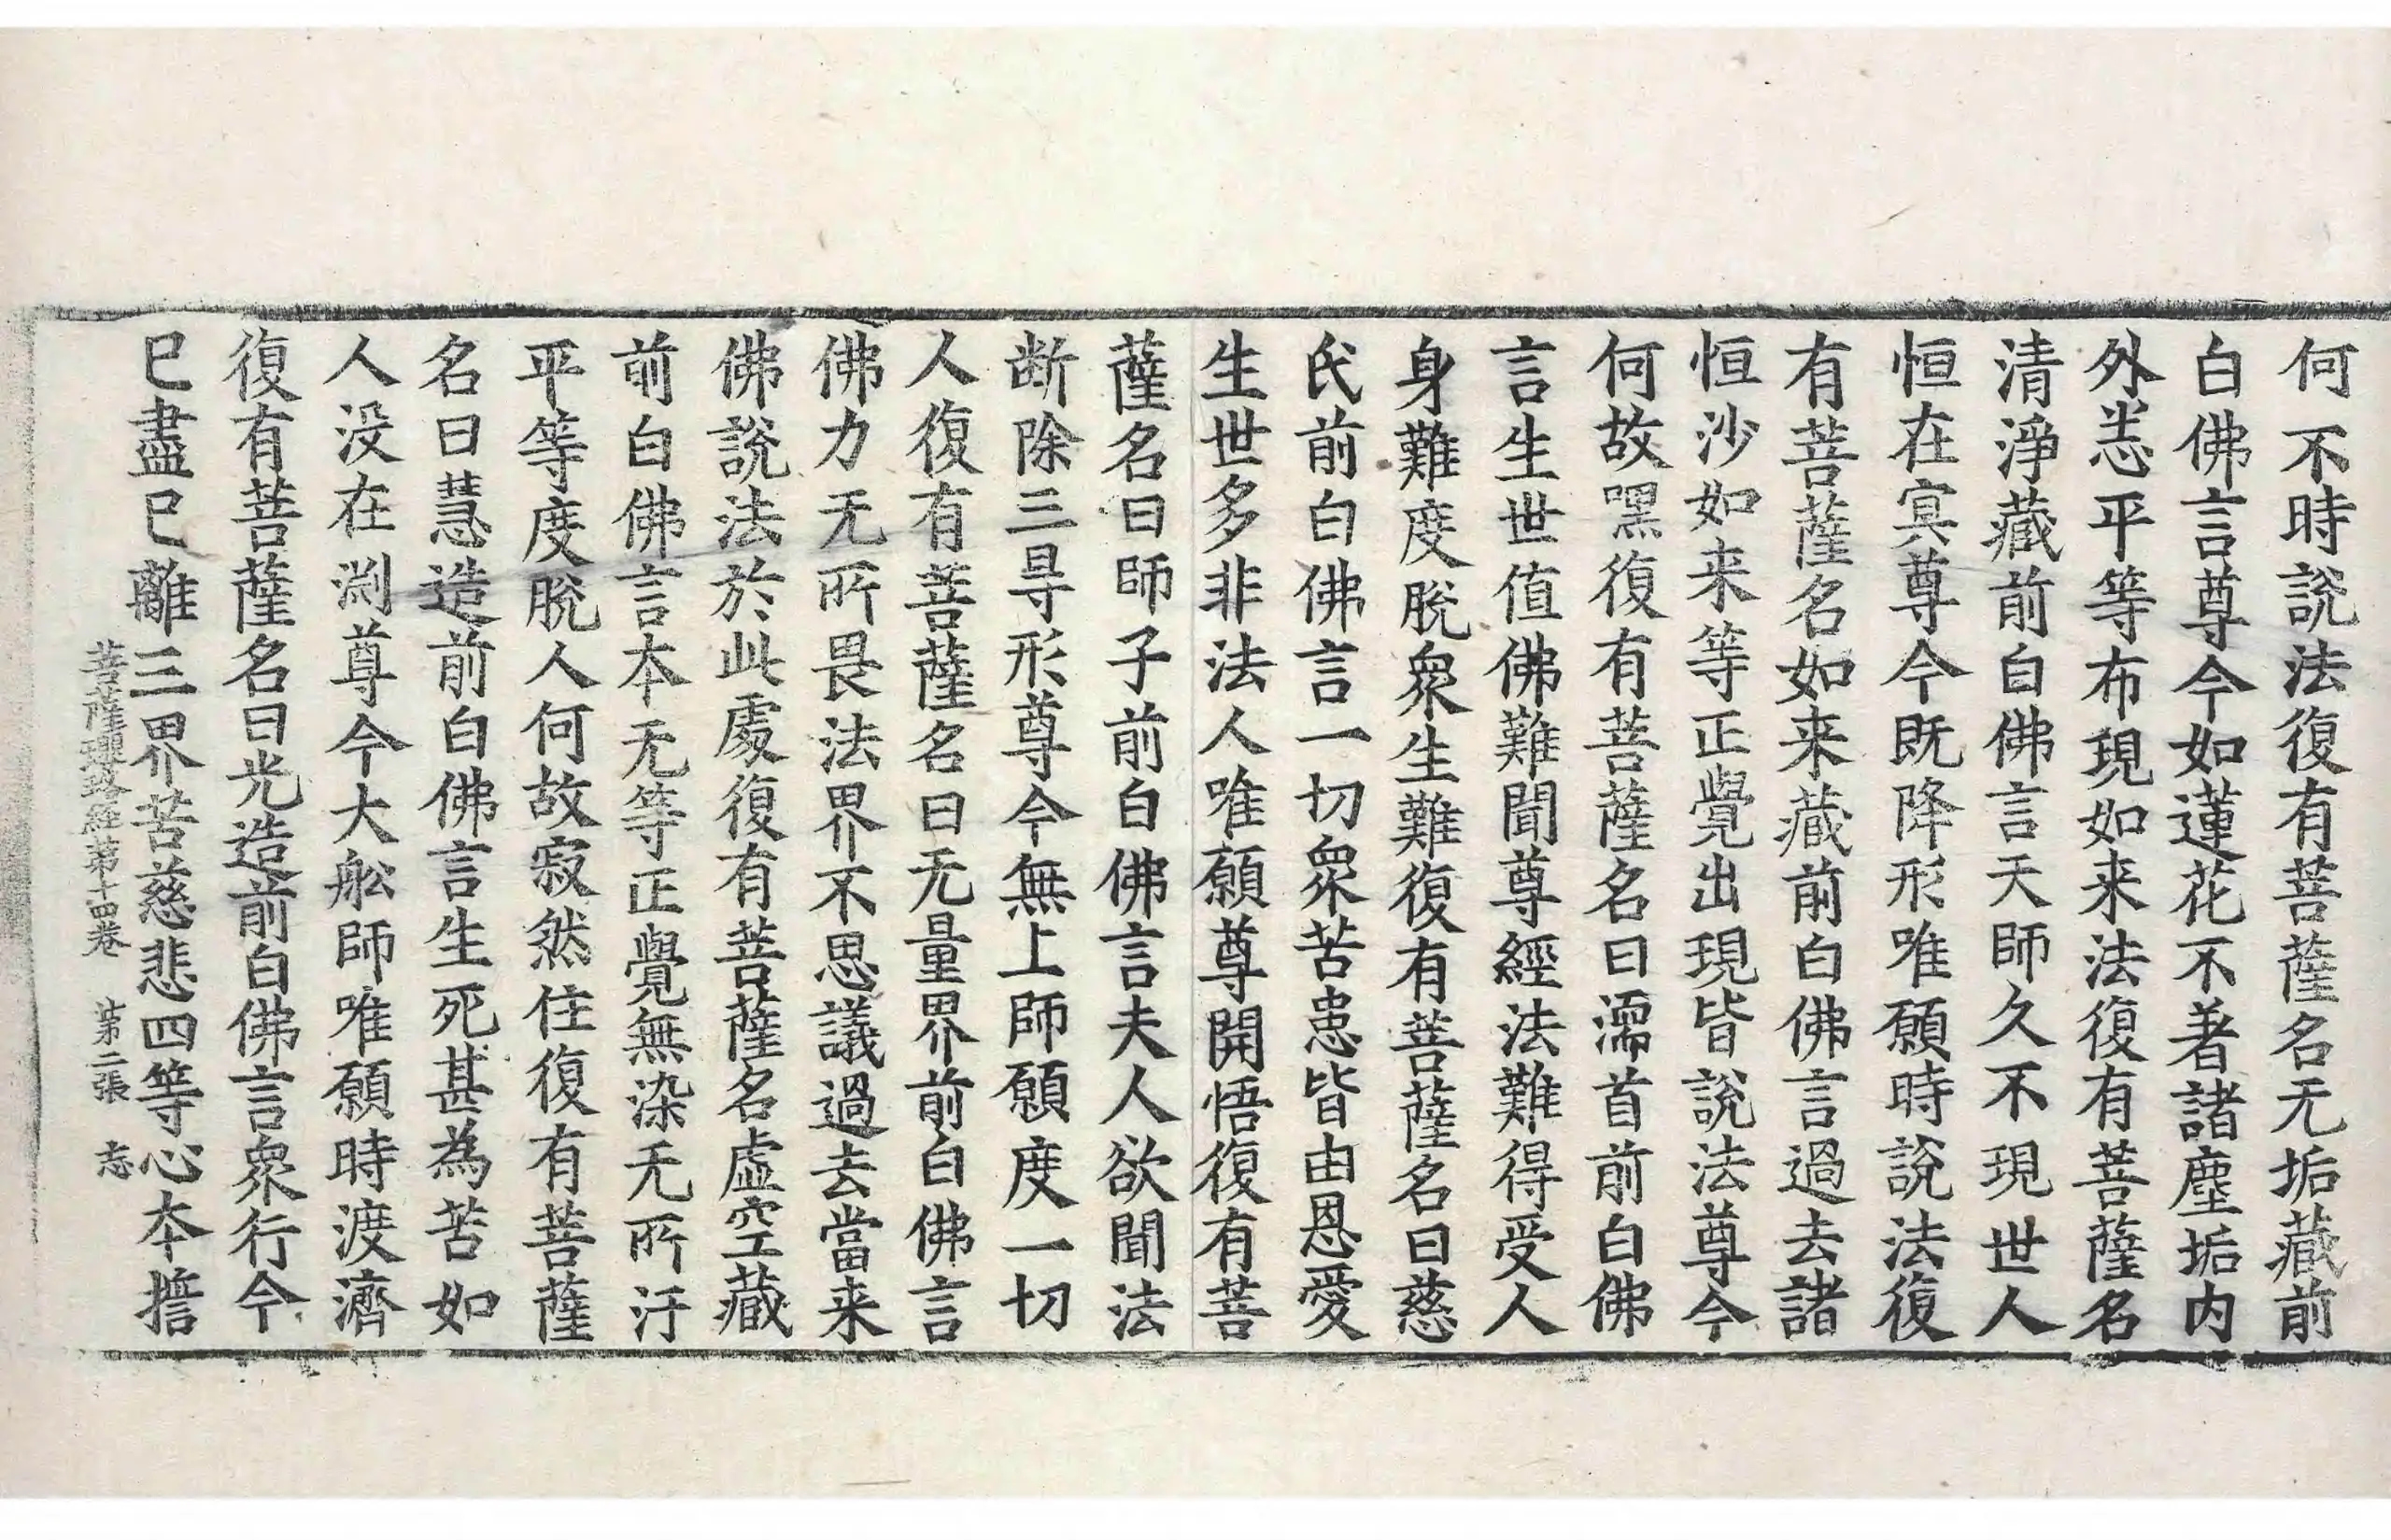 何不時說法復有菩薩名无垢藏前
白佛言尊今如蓮花不著諸塵垢内
外恙平等布現如来法復有菩薩名
清淨藏前白佛言天師久不現世人
恒在㝠尊今既降形唯願時說法復
有菩薩名如来藏前白佛言過去諸
恒沙如来等正覺出現皆說法尊今
何故嘿復有菩薩名曰濡首前白佛
言生世值佛難聞尊經法難得受人
身難度脫衆生難復有菩薩名曰慈
氏前白佛言一切衆苦患皆由恩愛
生世多非法人唯願尊開悟復有菩
薩名曰師子前白佛言夫人欲聞法
断除三㝵形尊今無上師願度一切
人復有菩薩名曰无量界前白佛言
佛力无所畏法界不思議過去當来
佛說法於此處復有菩薩名虛空藏
前白佛言本无等正覺無染无所汙
平等度脫人何故寂然住復有菩薩
名曰慧造前白佛言生死甚為苦如
人没在渕尊今大舩師唯願時渡濟
復有菩薩名曰光造前白佛言衆行今
已盡已離三界苦慈悲四等心本擔
菩薩瓔珞經第十四卷 第二張 志